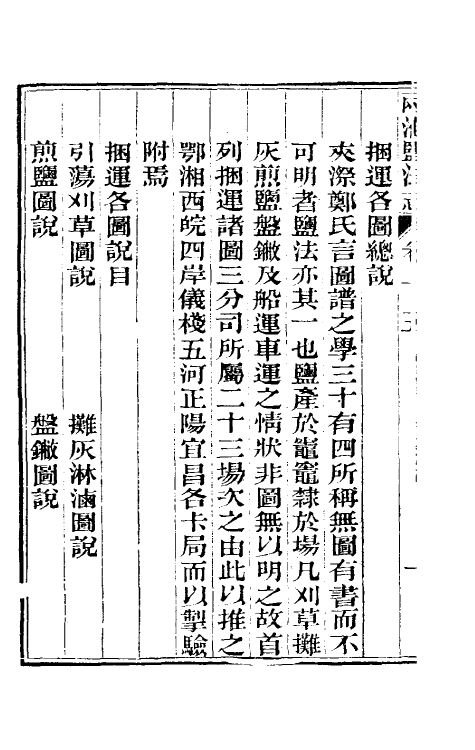 兩淮鹽法志
捆運各圖總說
夾漈鄭氏言圖譜之學三十有四所稱無圖有書而不
可明者鹽法亦其一也鹽產於竈竈隸於場凡刈草攤
灰煎鹽盤𨫼及船運車運之情狀非圖無以明之故首
列捆運諸圖三分司所屬二十三場次之由此以推之
鄂湘西皖四岸儀棧五河正陽宜昌各卡局而以掣驗
附焉
捆運各圖說目
引蕩刈草圖說 攤灰淋滷圖說
煎鹽圖說 盤𨫼圖說